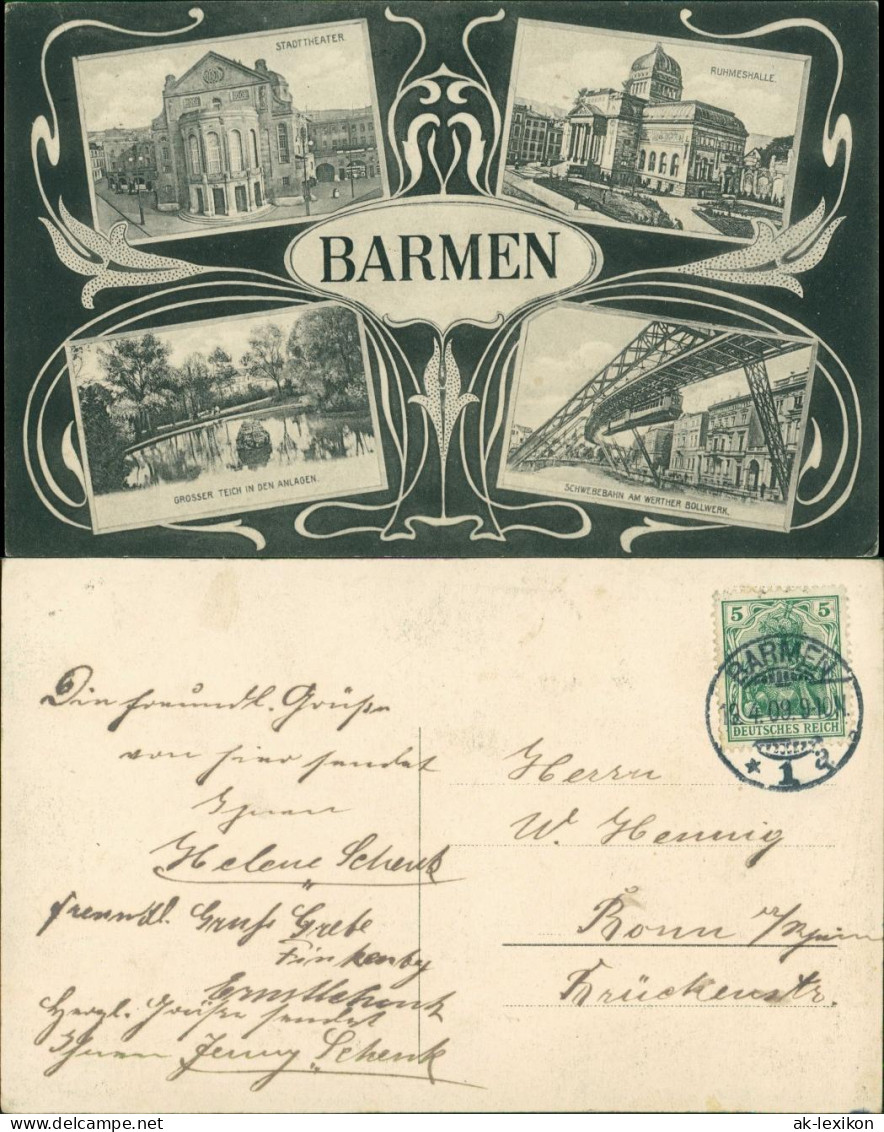 STADTTHEATER.
RUHMESHALLE.
BARMEN
GROSSER TEICH IN DEN ANLAGEN.
SCHWEBEBAHN AM WERTHER BOLLWERK.
5 5
DEUTSCHES REICH
BARMEN
4.09.9-10
* 1 a
Die freundl. Grüße
von hier sendet
Ihnen
Helene Schenk
freundl. Gruss Grete
Ernst Schenk
Herzl. Grüße sendet
Ihnen Jenny Schenk
Herrn
W. Hennig
Bonn a/Rhein
Brückenstr.
ak-lexikon